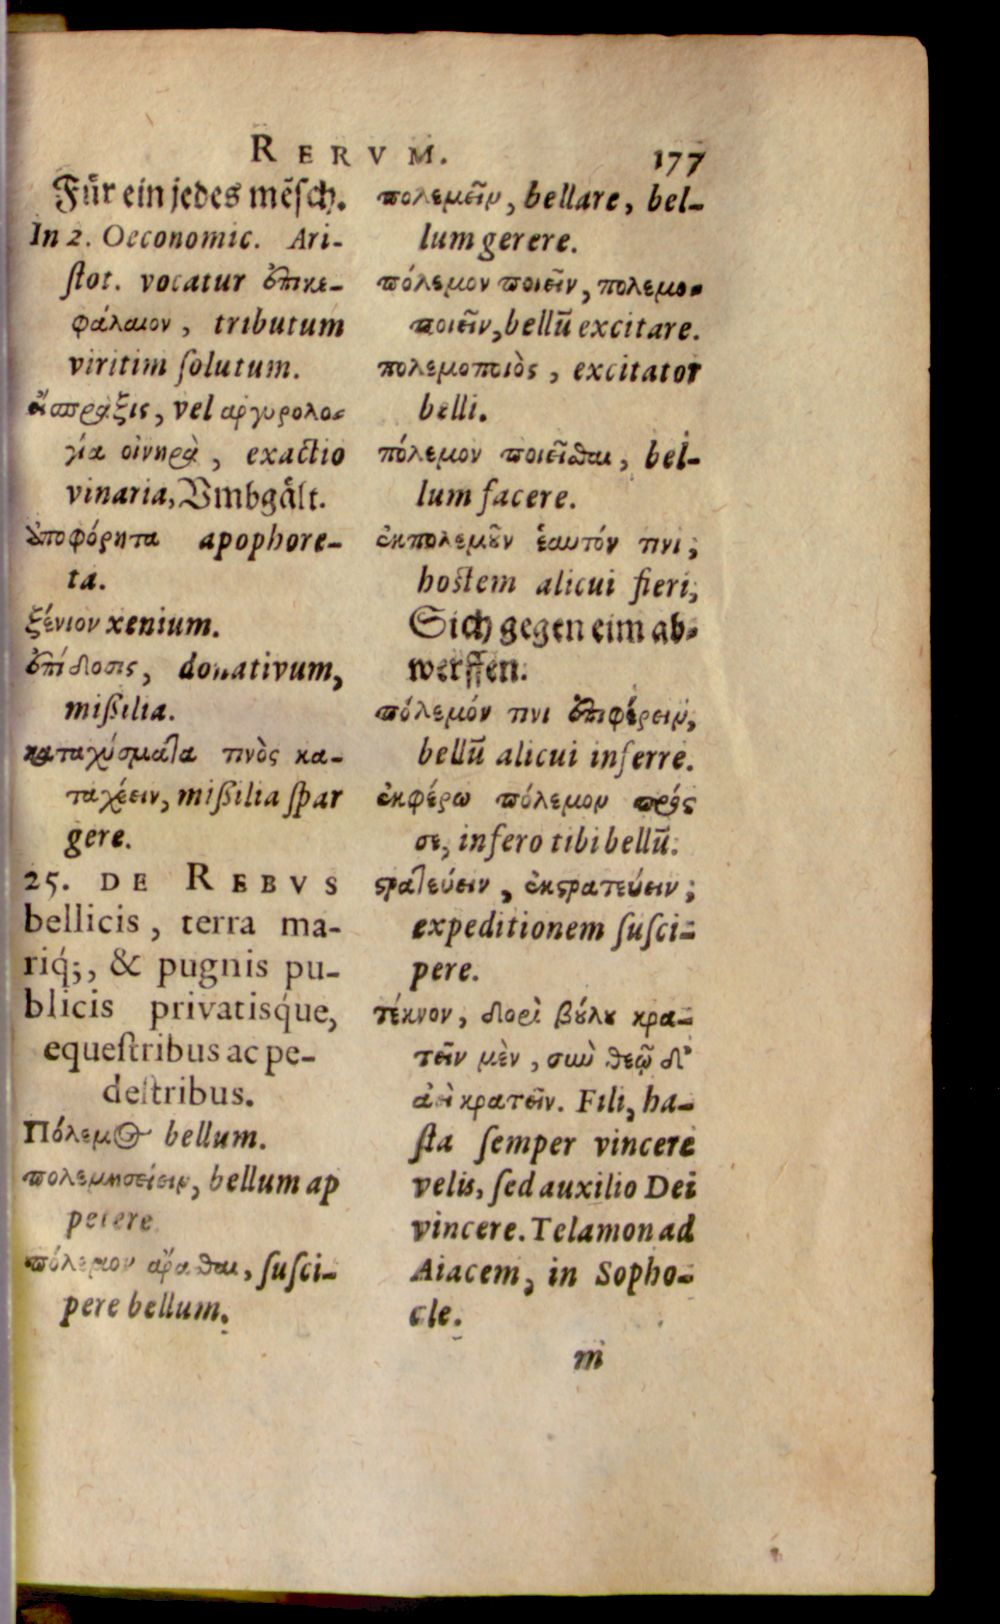 RERVM. 177
Für ein jedes mẽſch.
In 2. Oeconomic. Ari-
ſtot. vocatur ἐπικε-
φάλαιον, tributum
viritim ſolutum.
εἴσπραξις, vel αργυρολο-
γία οἰνηρὰ, exactio
vinaria, Vmbgålt.
ἀποφόρητα apophore-
ta.
ξένιον xenium.
ἐπίδοσις, donativum,
miſsilia.
καταχύσματα τινὸς κα-
ταχέειν, miſsilia ſpar
gere.
25. DE REBVS
bellicis, terra ma-
riq́;, & pugnis pu-
blicis privatisq́ue,
equeſtribus ac pe-
deſtribus.
Πόλεμος bellum.
πολεμησείειν, bellum ap
petere
πόλεμον αἴραθαι, ſuſci-
pere bellum.
πολεμεῖν, bellare, bel-
lum gerere.
πόλεμον ποιεῖν, πολεμο-
ποιεῖν, bellũ excitare.
πολεμοποιὸς, excitator
belli.
πόλεμον ποιεῖσθαι, bel-
lum facere.
ἐκπολεμοῦν ἑαυτόν τινι,
hoſtem alicui fieri,
Sich gegen eim ab-
werffen.
πόλεμόν τινι ἐπιφέρειν,
bellũ alicui inferre.
ἐκφέρω πόλεμον πρός
σε, infero tibi bellũ.
στρατεύειν, ἐκστρατεύειν,
expeditionem ſuſci-
pere.
τέκνον, δορὶ βούλου κρα-
τεῖν μὲν, σὺν θεῷ δ'
ἀεὶ κρατεῖν. Fili, ha-
ſta ſemper vincere
velis, ſed auxilio Dei
vincere. Telamon ad
Aiacem, in Sopho-
cle.
m